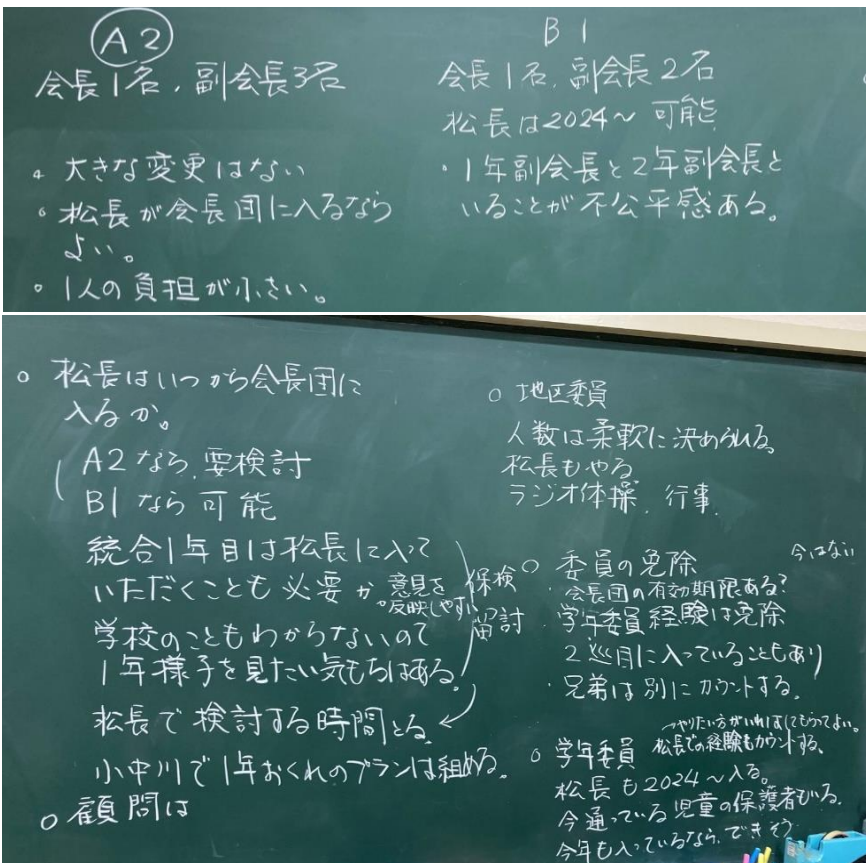 A2
会長1名、副会長3名
。大きな変更はない
。松長が会長団に入るなら
よい。
。1人の負担が小さい。
B1
会長1名、副会長2名
松長は2024～可能
・1年副会長と2年副会長と
いることが不公平感ある。
○松長はいつから会長団に
入るか。
A2なら、要検討
B1なら可能
統合1年目は松長に入って
いただくことも必要か
意見を
。反映しやすい
学校のこともわからないので
1年様子を見たい気もちはある。
保検
留討
松長で検討する時間とる。
小中川で1年おくれのプランは組める。
○顧問は
○地区委員
人数は柔軟に決められる。
松長もやる
ラジオ体操、行事
○委員の免除
今はない
・会長団の有効期限ある?
・学年委員経験は免除
2巡目に入っていることもあり
・兄弟は別にカウントする。
○学年委員
やりたい方がいればしてもらってよい。
松長での経験もカウントする、
松長も2024～入る。
今通っている児童の保護者もいる。
今年も入っているなら、できそう